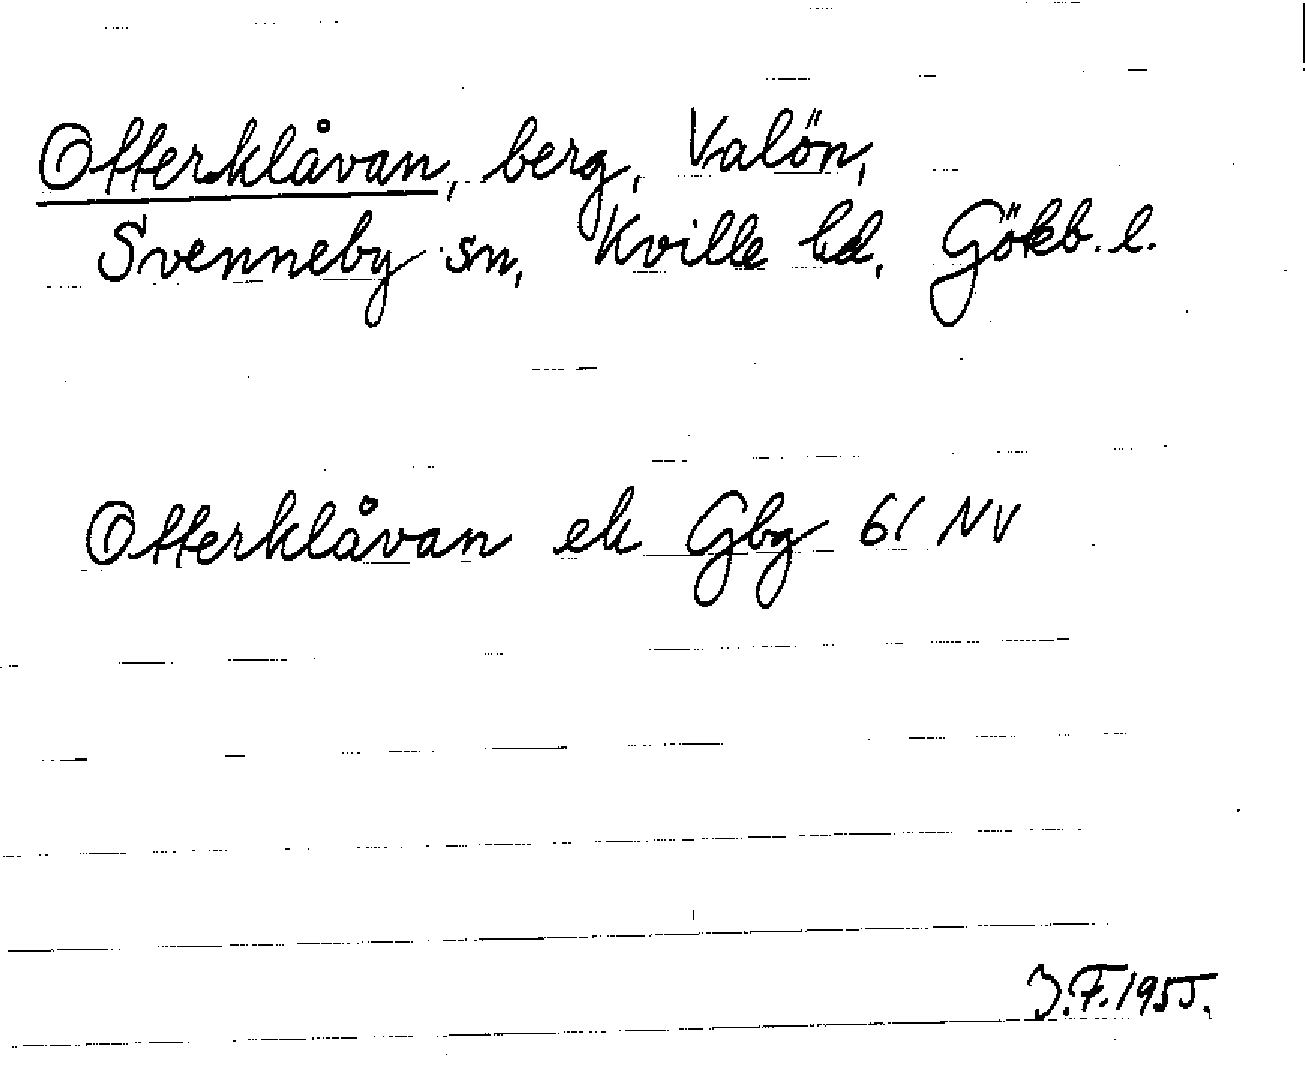 Otterklåvan, berg, Valön,
Svenneby sn, Kville hd, Gökb. l.
Otterklåvan ek Gbg 61 NV
J.F. 1955.